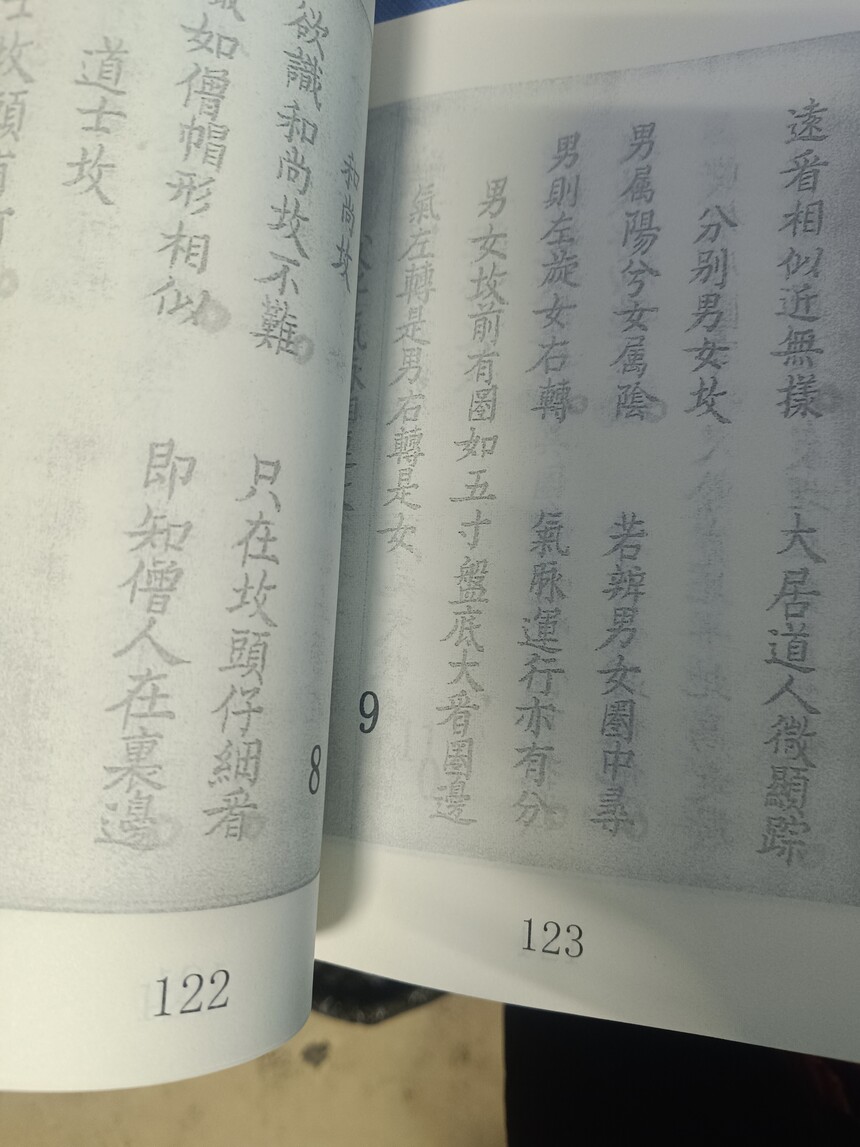 和尚坟
欲識和尚坟不難 只在坟頭仔細看
如僧帽形相似 即知僧人在裏邊
道士坟
坟頭有
8
122
遠看相似近無樣 大居道人微顯踪
分別男女坟
男属陽兮女属陰 若辨男女圈中尋
男則左旋女右轉 氣脉運行亦有分
男女坟前有圈如五寸盤底大看圈邊
氣左轉是男右轉是女
9
123